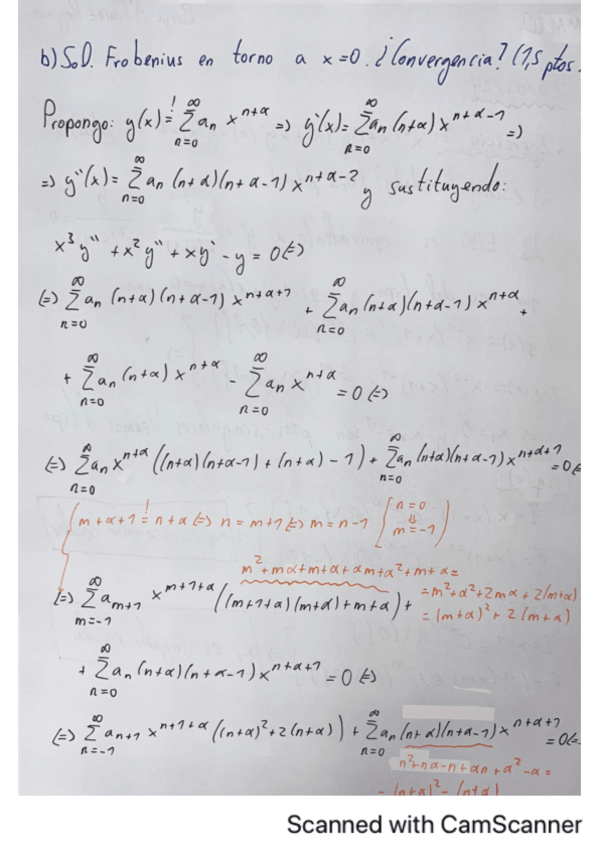 b) S.O.D. Frobenius en torno a x=0. ¿Convergencia? (1,5 ptos.
Propongo: y(x) =! ∑_{n=0}^{∞} a_n x^{n+α} => y'(x) = ∑_{n=0}^{∞} a_n (n+α) x^{n+α-1} =>
=> y''(x) = ∑_{n=0}^{∞} a_n (n+α)(n+α-1) x^{n+α-2} y sustituyendo:
x³y'' + x²y'' + xy' - y = 0 (=)
(=) ∑_{n=0}^{∞} a_n (n+α)(n+α-1) x^{n+α+1} + ∑_{n=0}^{∞} a_n (n+α)(n+α-1) x^{n+α} +
+ ∑_{n=0}^{∞} a_n (n+α) x^{n+α} - ∑_{n=0}^{∞} a_n x^{n+α} = 0 (=)
(=) ∑_{n=0}^{∞} a_n x^{n+α} ((n+α)(n+α-1) + (n+α) - 1) + ∑_{n=0}^{∞} a_n (n+α)(n+α-1) x^{n+α+1} = 0 (=
{ m+α+1 =! n+α (=) n = m+1 (=) m = n-1 [ n=0 ⇓ m=-1 )
m²+mα+m+α+αm+α²+m+α =
= m²+α²+2mα+2(m+α)
= (m+α)²+2(m+α)
(=) ∑_{m=-1}^{∞} a_{m+1} x^{m+1+α} ((m+1+α)(m+α)+m+α) +
+ ∑_{n=0}^{∞} a_n (n+α)(n+α-1) x^{n+α+1} = 0 (=)
(=) ∑_{n=-1}^{∞} a_{n+1} x^{n+1+α} ((n+α)²+2(n+α)) + ∑_{n=0}^{∞} a_n (n+α)(n+α-1) x^{n+α+1} = 0 (=
n²+nα-n+αn+α²-α =
= (n+α)² - (n+α)
Scanned with CamScanner